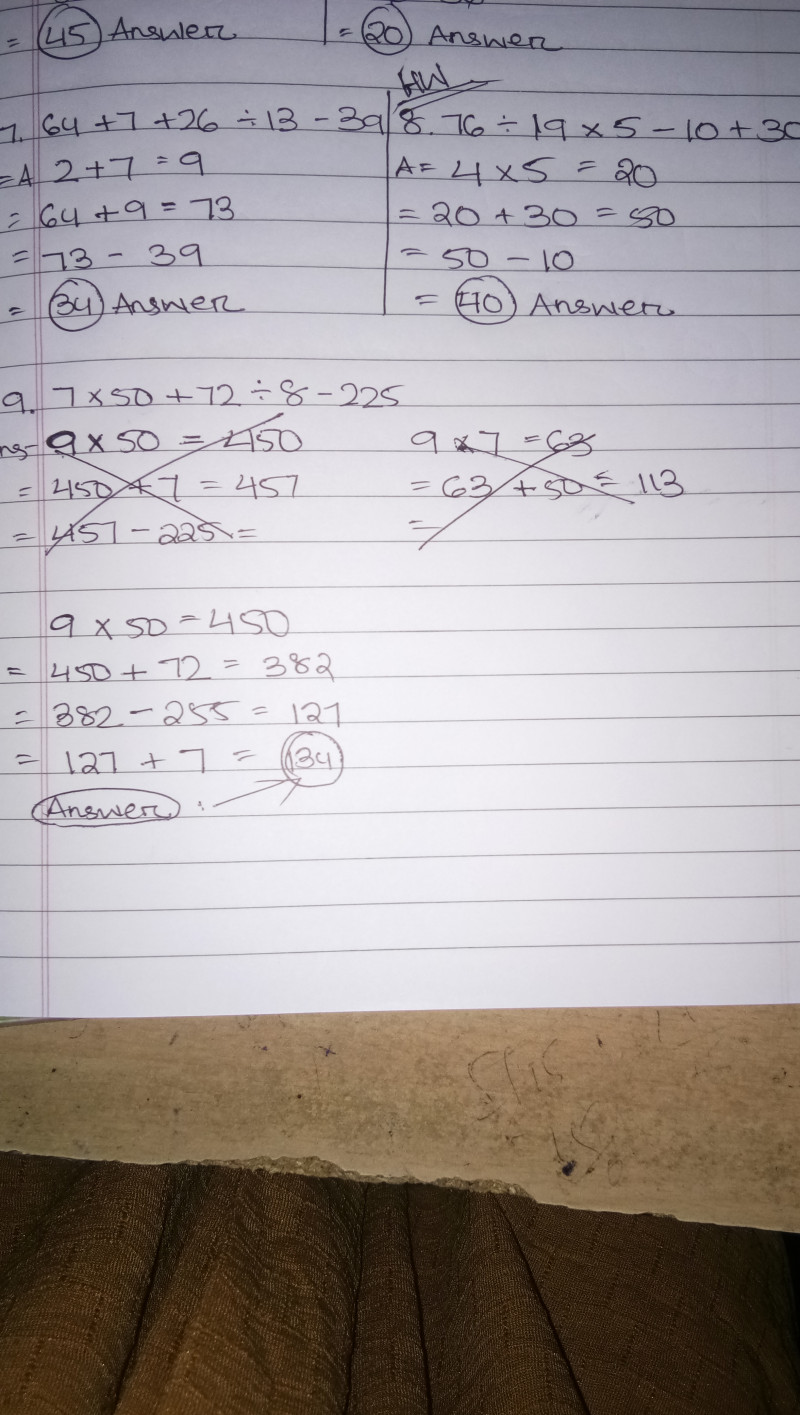 = 45 Answer
= 20 Answer
7. 64 + 7 + 26 ÷ 13 - 39
=A 2 + 7 = 9
= 64 + 9 = 73
= 73 - 39
= 34 Answer
HW
8. 76 ÷ 19 × 5 - 10 + 30
A= 4 × 5 = 20
= 20 + 30 = 50
= 50 - 10
= 40 Answer
9. 7 × 50 + 72 ÷ 8 - 225
ns- 9 × 50 = 450
= 450 + 7 = 457
= 457 - 225 =
9 × 7 = 63
= 63 + 50 = 113
=
9 × 50 = 450
= 450 + 72 = 382
= 382 - 255 = 127
= 127 + 7 = 134
Answer :